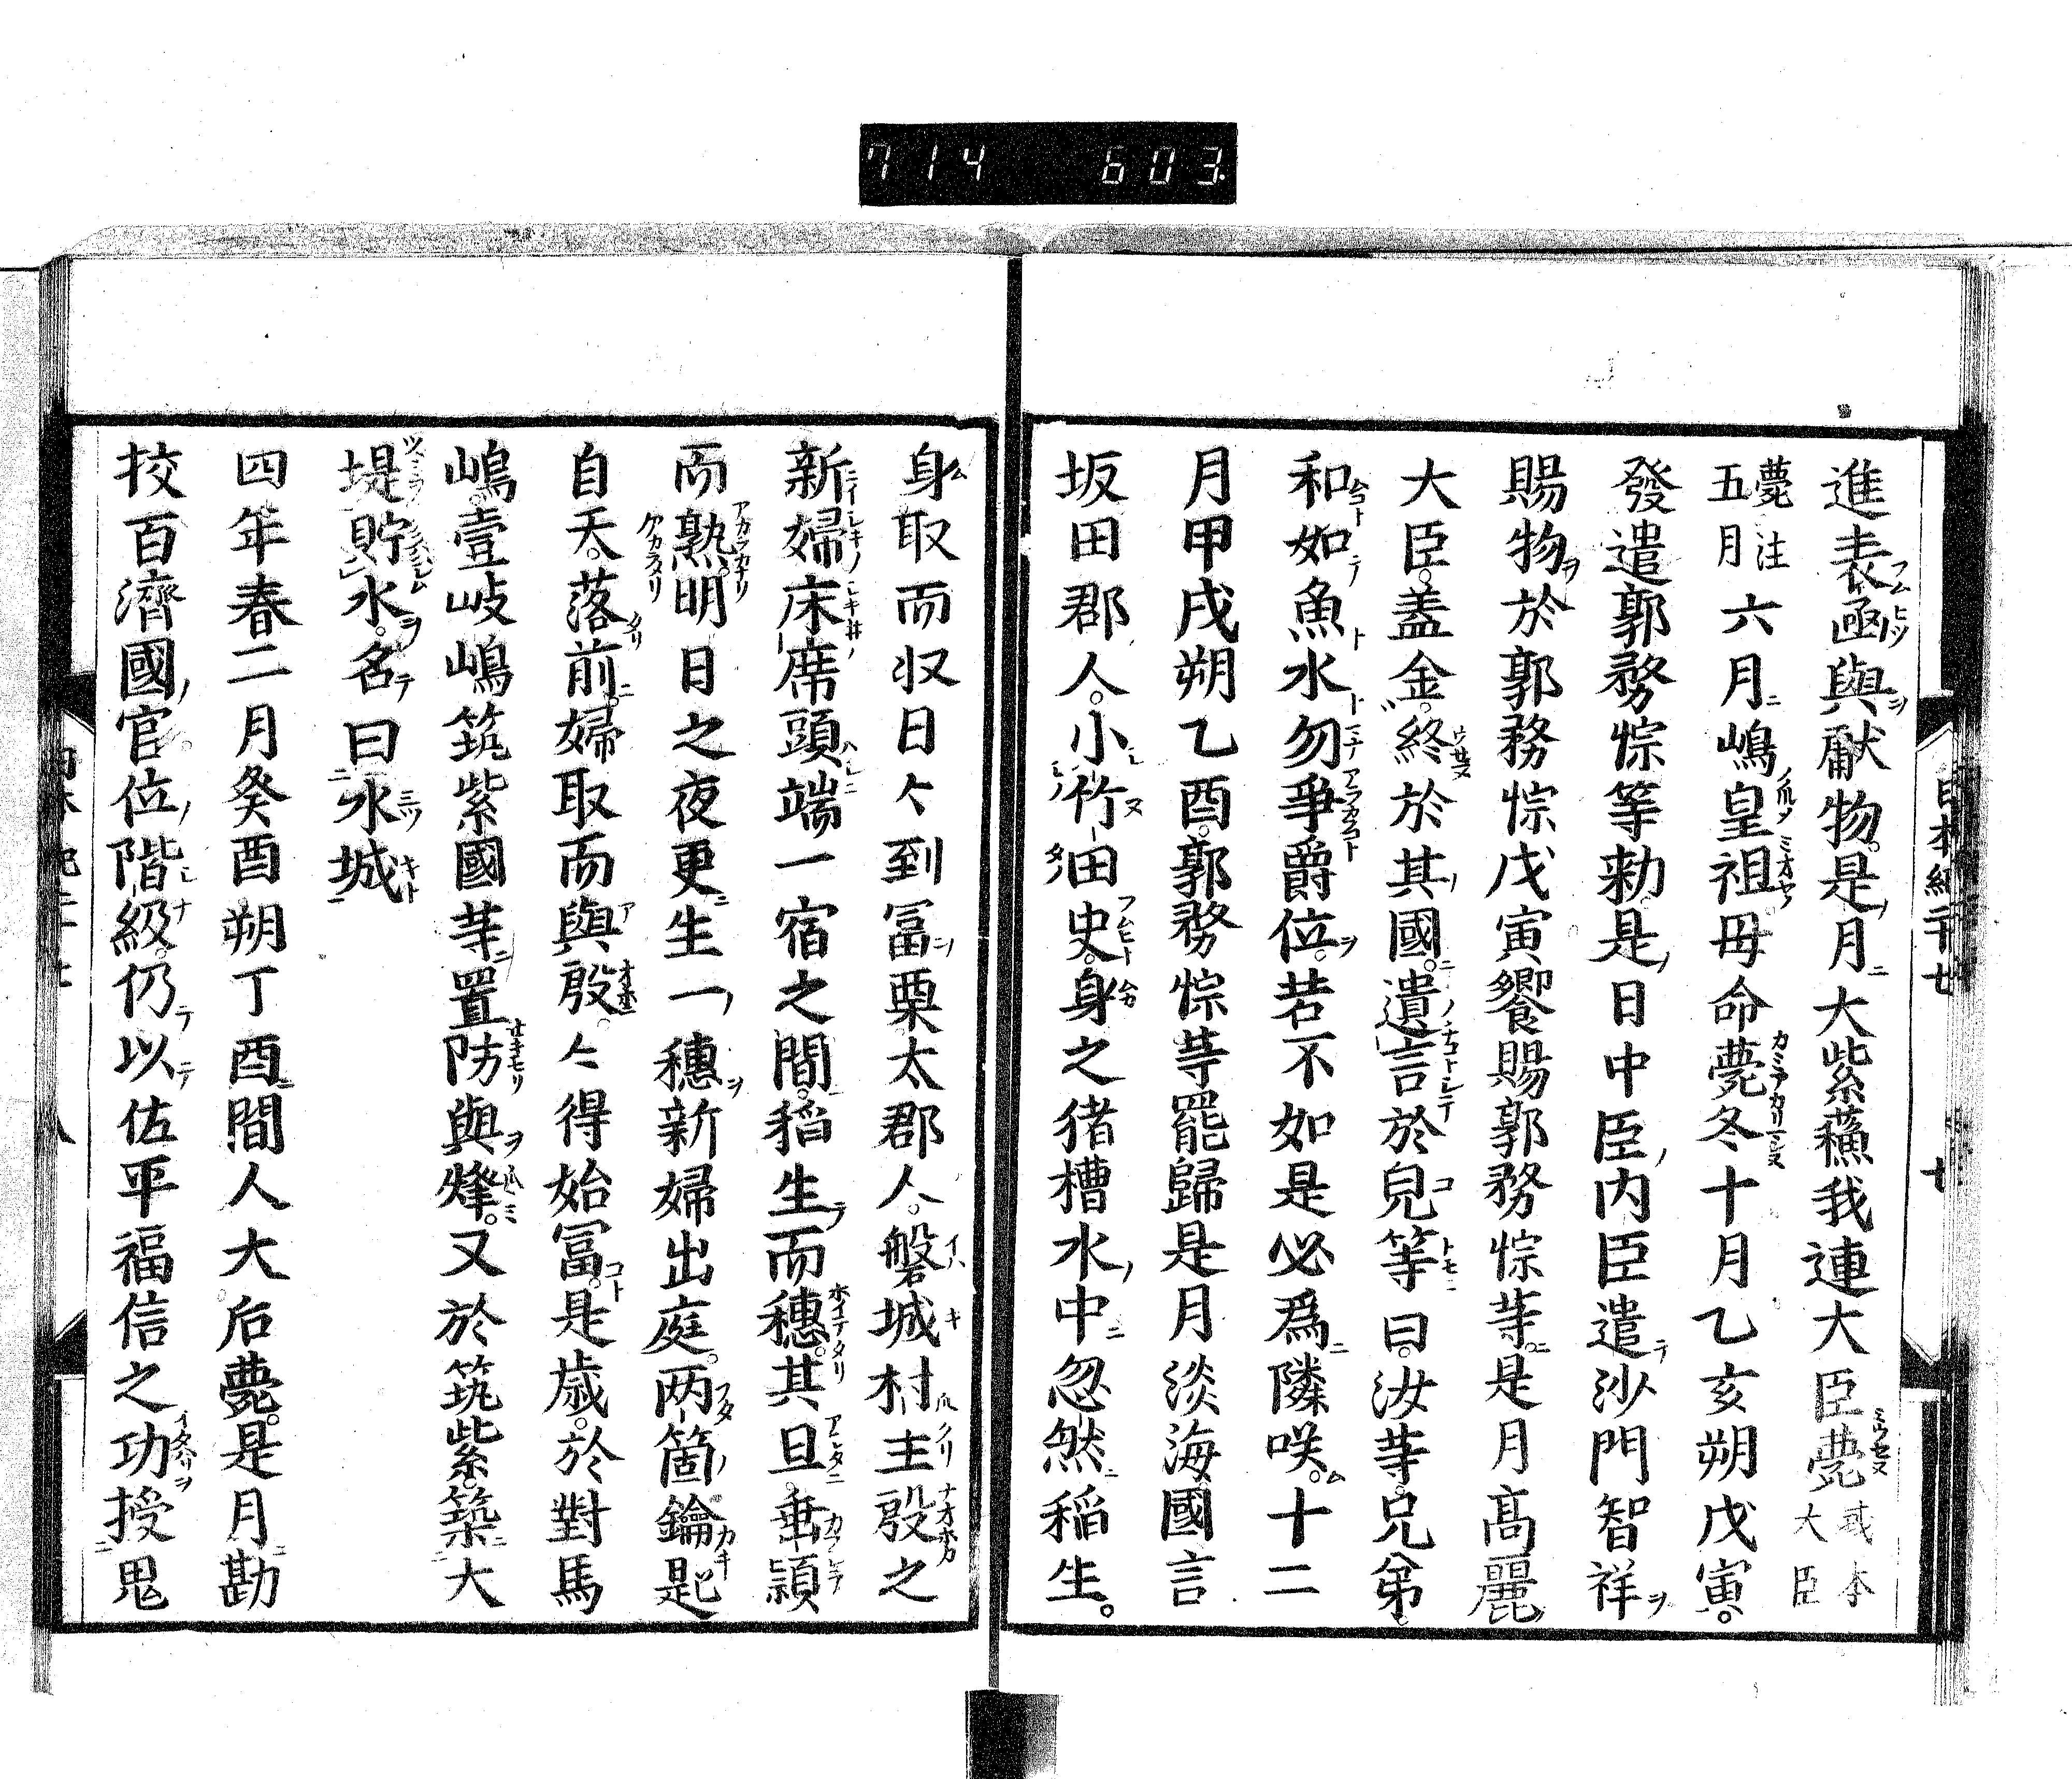 714 603
進表凾與獻物是月大紫蘓我連大臣薨或本大臣
薨注五月六月嶋皇祖母命薨冬十月乙亥朔戊寅
發遣郭務悰等勅是日中臣内臣遣沙門智祥
賜物於郭務悰戊寅饗賜郭務悰䓁是月髙麗
大臣盖金終於其國遺言於兒等曰汝䓁兄弟
和如魚水勿爭爵位若不如是必爲隣咲十二
月甲戌朔乙酉郭務悰䓁罷歸是月淡海國言
坂田郡人小竹田史身之猪槽水中忽然稻生
身取而収日〻到冨栗太郡人磐城村主殷之
新婦床席頭端一宿之間稻生而穗其旦垂頴
而熟明日之夜更生一穗新婦出庭两箇鑰匙
自天落前婦取而與殷〻得始冨是歳於對馬
嶋壹岐嶋筑紫國䓁置防與烽又於筑紫築大
堤貯水名曰水城
四年春二月癸酉朔丁酉間人大后薨是月勘
挍百濟國官位階級仍以佐平福信之功授鬼